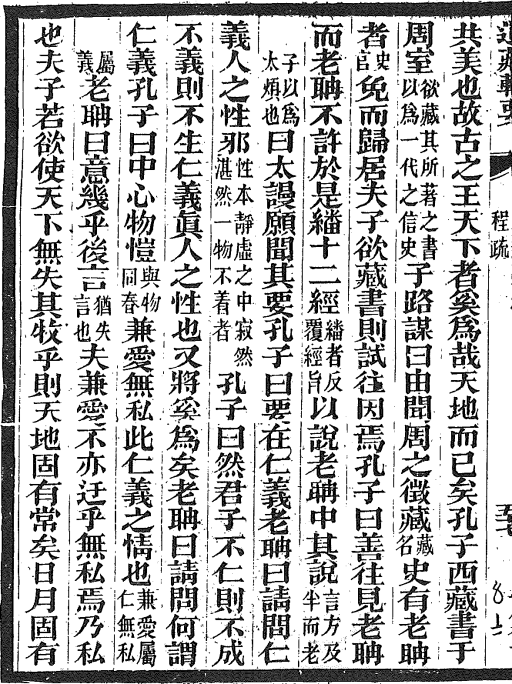 道藏輯要
程疏
共美也故古之王天下者奚為哉天地而已矣孔子西藏書于
周室欲藏其所著之書以為一代之信史子路謀曰由聞周之徵藏藏名史有老聃
者史官免而歸居夫子欲藏書則試往因焉孔子曰善往見老聃
而老聃不許於是繙十二經繙者反覆經旨以說老聃中其說言方及半而老
子以為太煩也曰太謾願聞其要孔子曰要在仁義老聃曰請問仁
義人之性邪性本靜虛之中寂然湛然一物不着者孔子曰然君子不仁則不成
不義則不生仁義真人之性也又將奚為矣老聃曰請問何謂
仁義孔子曰中心物愷與物同春兼愛無私此仁義之情也兼愛屬仁無私
屬義老聃曰意幾乎後言猶失言也夫兼愛不亦迂乎無私焉乃私
也夫子若欲使天下無失其牧乎則天地固有常矣日月固有